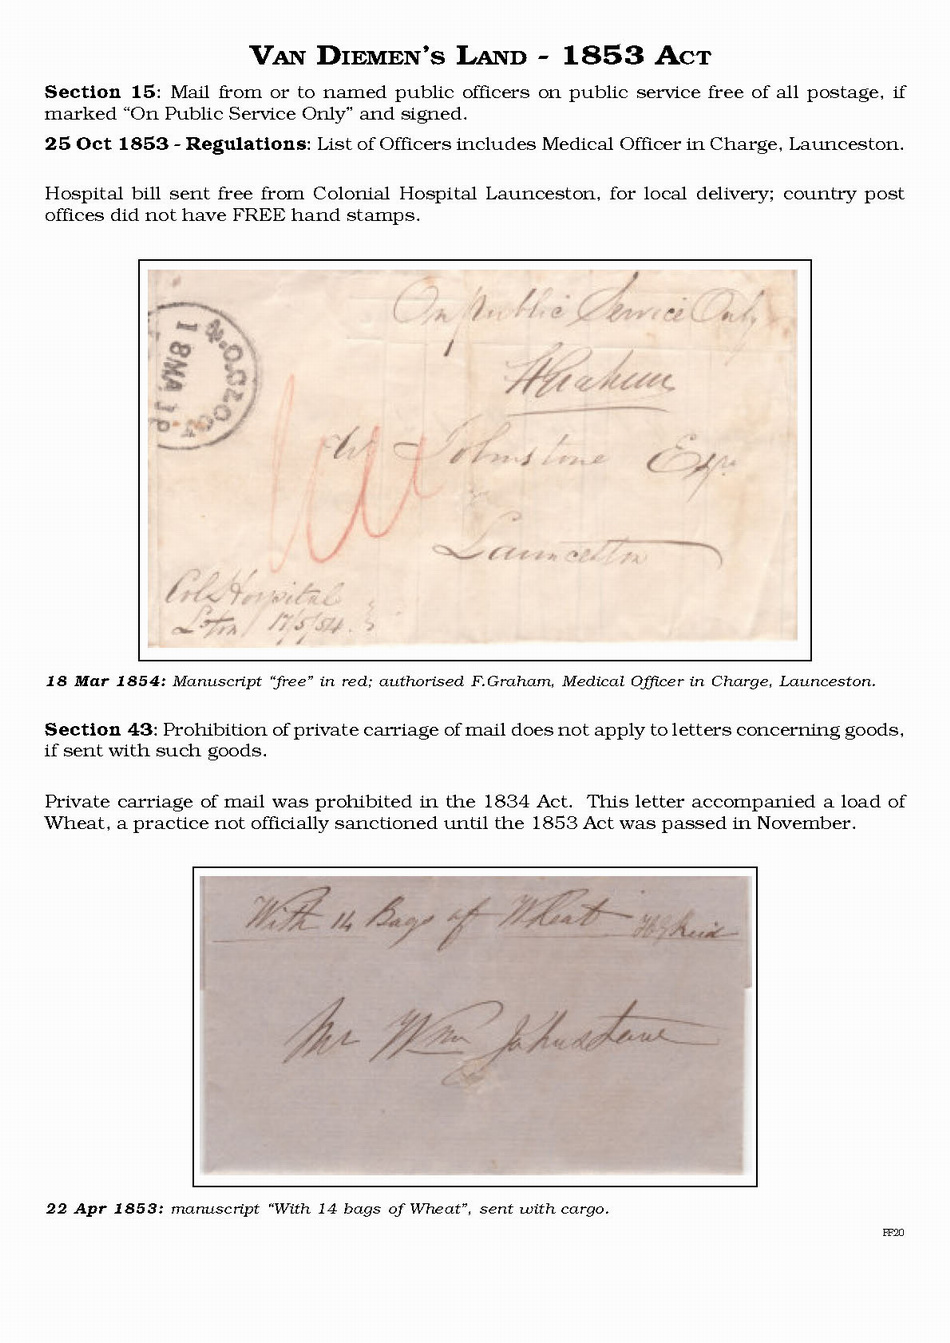 VAN DIEMEN'S LAND - 1853 ACT
Section 15: Mail from or to named public officers on public service free of all postage, if
marked “On Public Service Only” and signed.
25 Oct 1853 - Regulations: List of Officers includes Medical Officer in Charge, Launceston.
Hospital bill sent free from Colonial Hospital Launceston, for local delivery; country post
offices did not have FREE hand stamps.
On public Service Only
FGraham
W Johnstone Esqr.
Launceston
Col Hospital
L'ton 17/5/54.
18 Mar 1854: Manuscript “free” in red; authorised F.Graham, Medical Officer in Charge, Launceston.
Section 43: Prohibition of private carriage of mail does not apply to letters concerning goods,
if sent with such goods.
Private carriage of mail was prohibited in the 1834 Act. This letter accompanied a load of
Wheat, a practice not officially sanctioned until the 1853 Act was passed in November.
With 14 Bags of Wheat
Mr Wm Johnstone
22 Apr 1853: manuscript “With 14 bags of Wheat”, sent with cargo.
FF20